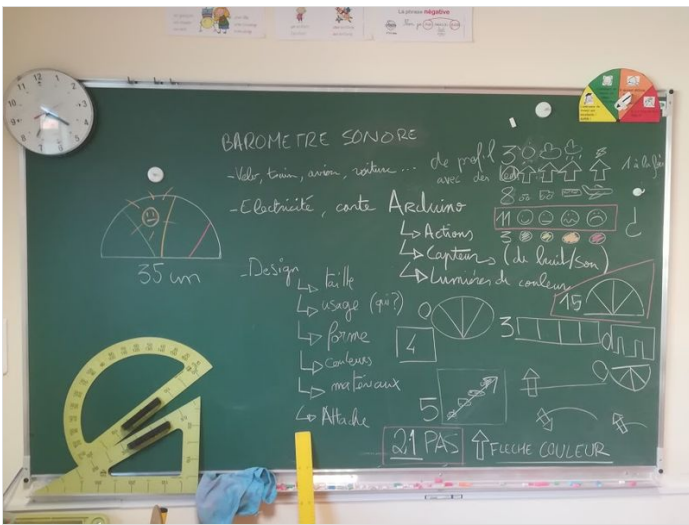 La phrase négative
BAROMETRE SONORE
- Velo, train, avion, voiture ...
de profil
avec des
3
1 à la fois
8
- Electricité, carte Arduino
11
↳ Actions
3
↳ Capteurs (de bruit/son)
↳ Lumières de couleur
15
35 cm
- Design
↳ taille
↳ usage (qui?)
0
↳ forme
4
3
0
↳ Couleurs
0
↳ matériaux
5
↳ Attache
21 PAS
FLECHE COULEUR